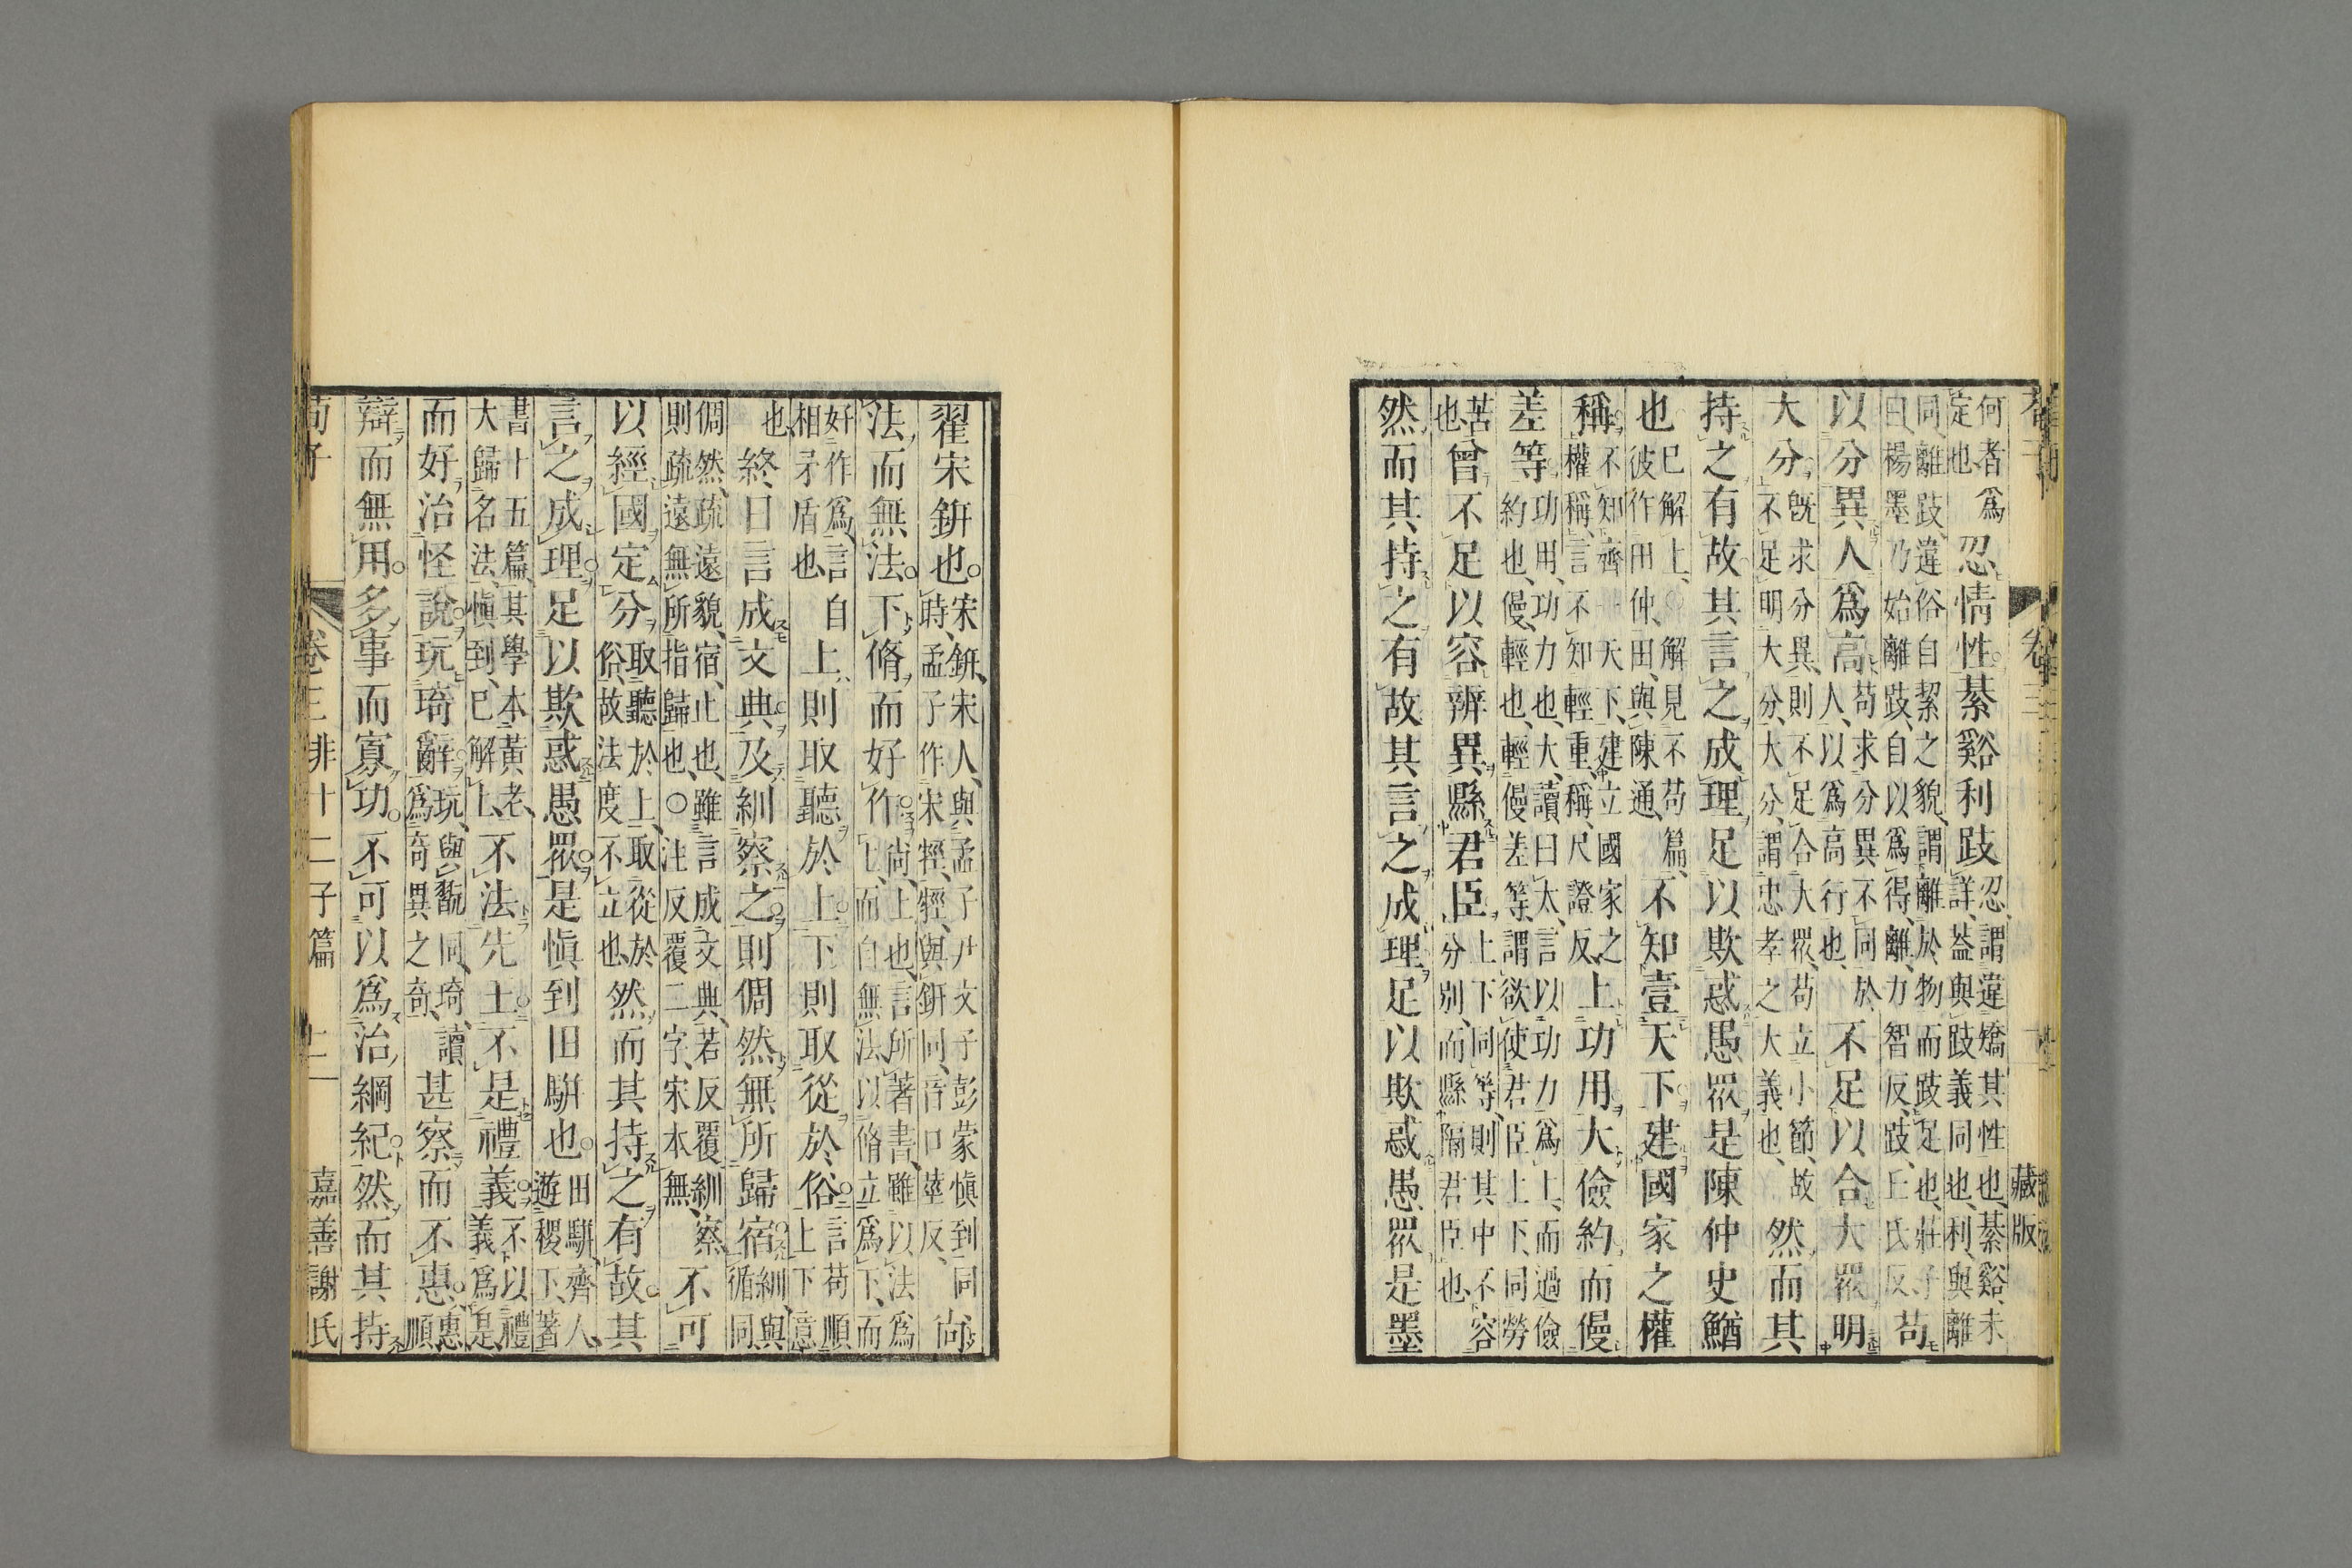 何者爲
定也
忍情性綦谿利跂
忍謂違矯其性也綦谿未
詳葢與跂義同也利與離
同離跂違俗自絜之貌謂離於物而跂足也莊子
曰楊墨乃始離跂自以爲得離力智反跂丘氏反
苟
以分異人爲高
苟求分異不同於
人以爲高行也
不足以合大衆明
大分
既求分異則不足合大衆苟立小節故
不足明大分大分謂忠孝之大義也
然而其
持之有故其言之成理足以欺惑愚衆是陳仲史鰌
也
已解上○解見不苟篇
彼作田仲田與陳通
不知壹天下建國家之權
稱
不知齊一天下建立國家之
權稱言不知輕重稱尺證反
上功用大儉約而僈
差等
功用功力也大讀曰太言以功力爲上而過儉
約也僈輕也輕僈差等謂欲使君臣上下同勞
苦
也
曾不足以容辨異縣君臣
上下同等則其中不容
分別而縣隔君臣也
然而其持之有故其言之成理足以欺惑愚衆是墨
藏版
翟宋鈃也
宋鈃宋人與孟子尹文子彭蒙愼到同
時孟子作宋牼牼與鈃同音口莖反
尚
法而無法下脩而好作
尚上也言所著書雖以法爲
上而自無法以脩立爲下而
好作爲言自
相矛盾也
上則取聽於上下則取從於俗
言苟順
上下意
也
終日言成文典及紃察之則倜然無所歸宿
紃與
循同
倜然疏遠貌宿止也雖言成文典若反覆紃察
則疏遠無所指歸也○注反覆二字宋本無
不可
以經國定分
取聽於上取從於
俗故法度不立也
然而其持之有故其
言之成理足以欺惑愚衆是愼到田騈也
田騈齊人
遊稷下著
書十五篇其學本黃老
大歸名法愼到已解上
不法先王不是禮義
不以禮
義爲是
而好治怪說玩琦辭
玩與翫同琦讀
爲奇異之奇
甚察而不惠
惠
順
辯而無用多事而寡功不可以爲治綱紀然而其持
荀子
卷三非十二子篇
十一
嘉善謝氏